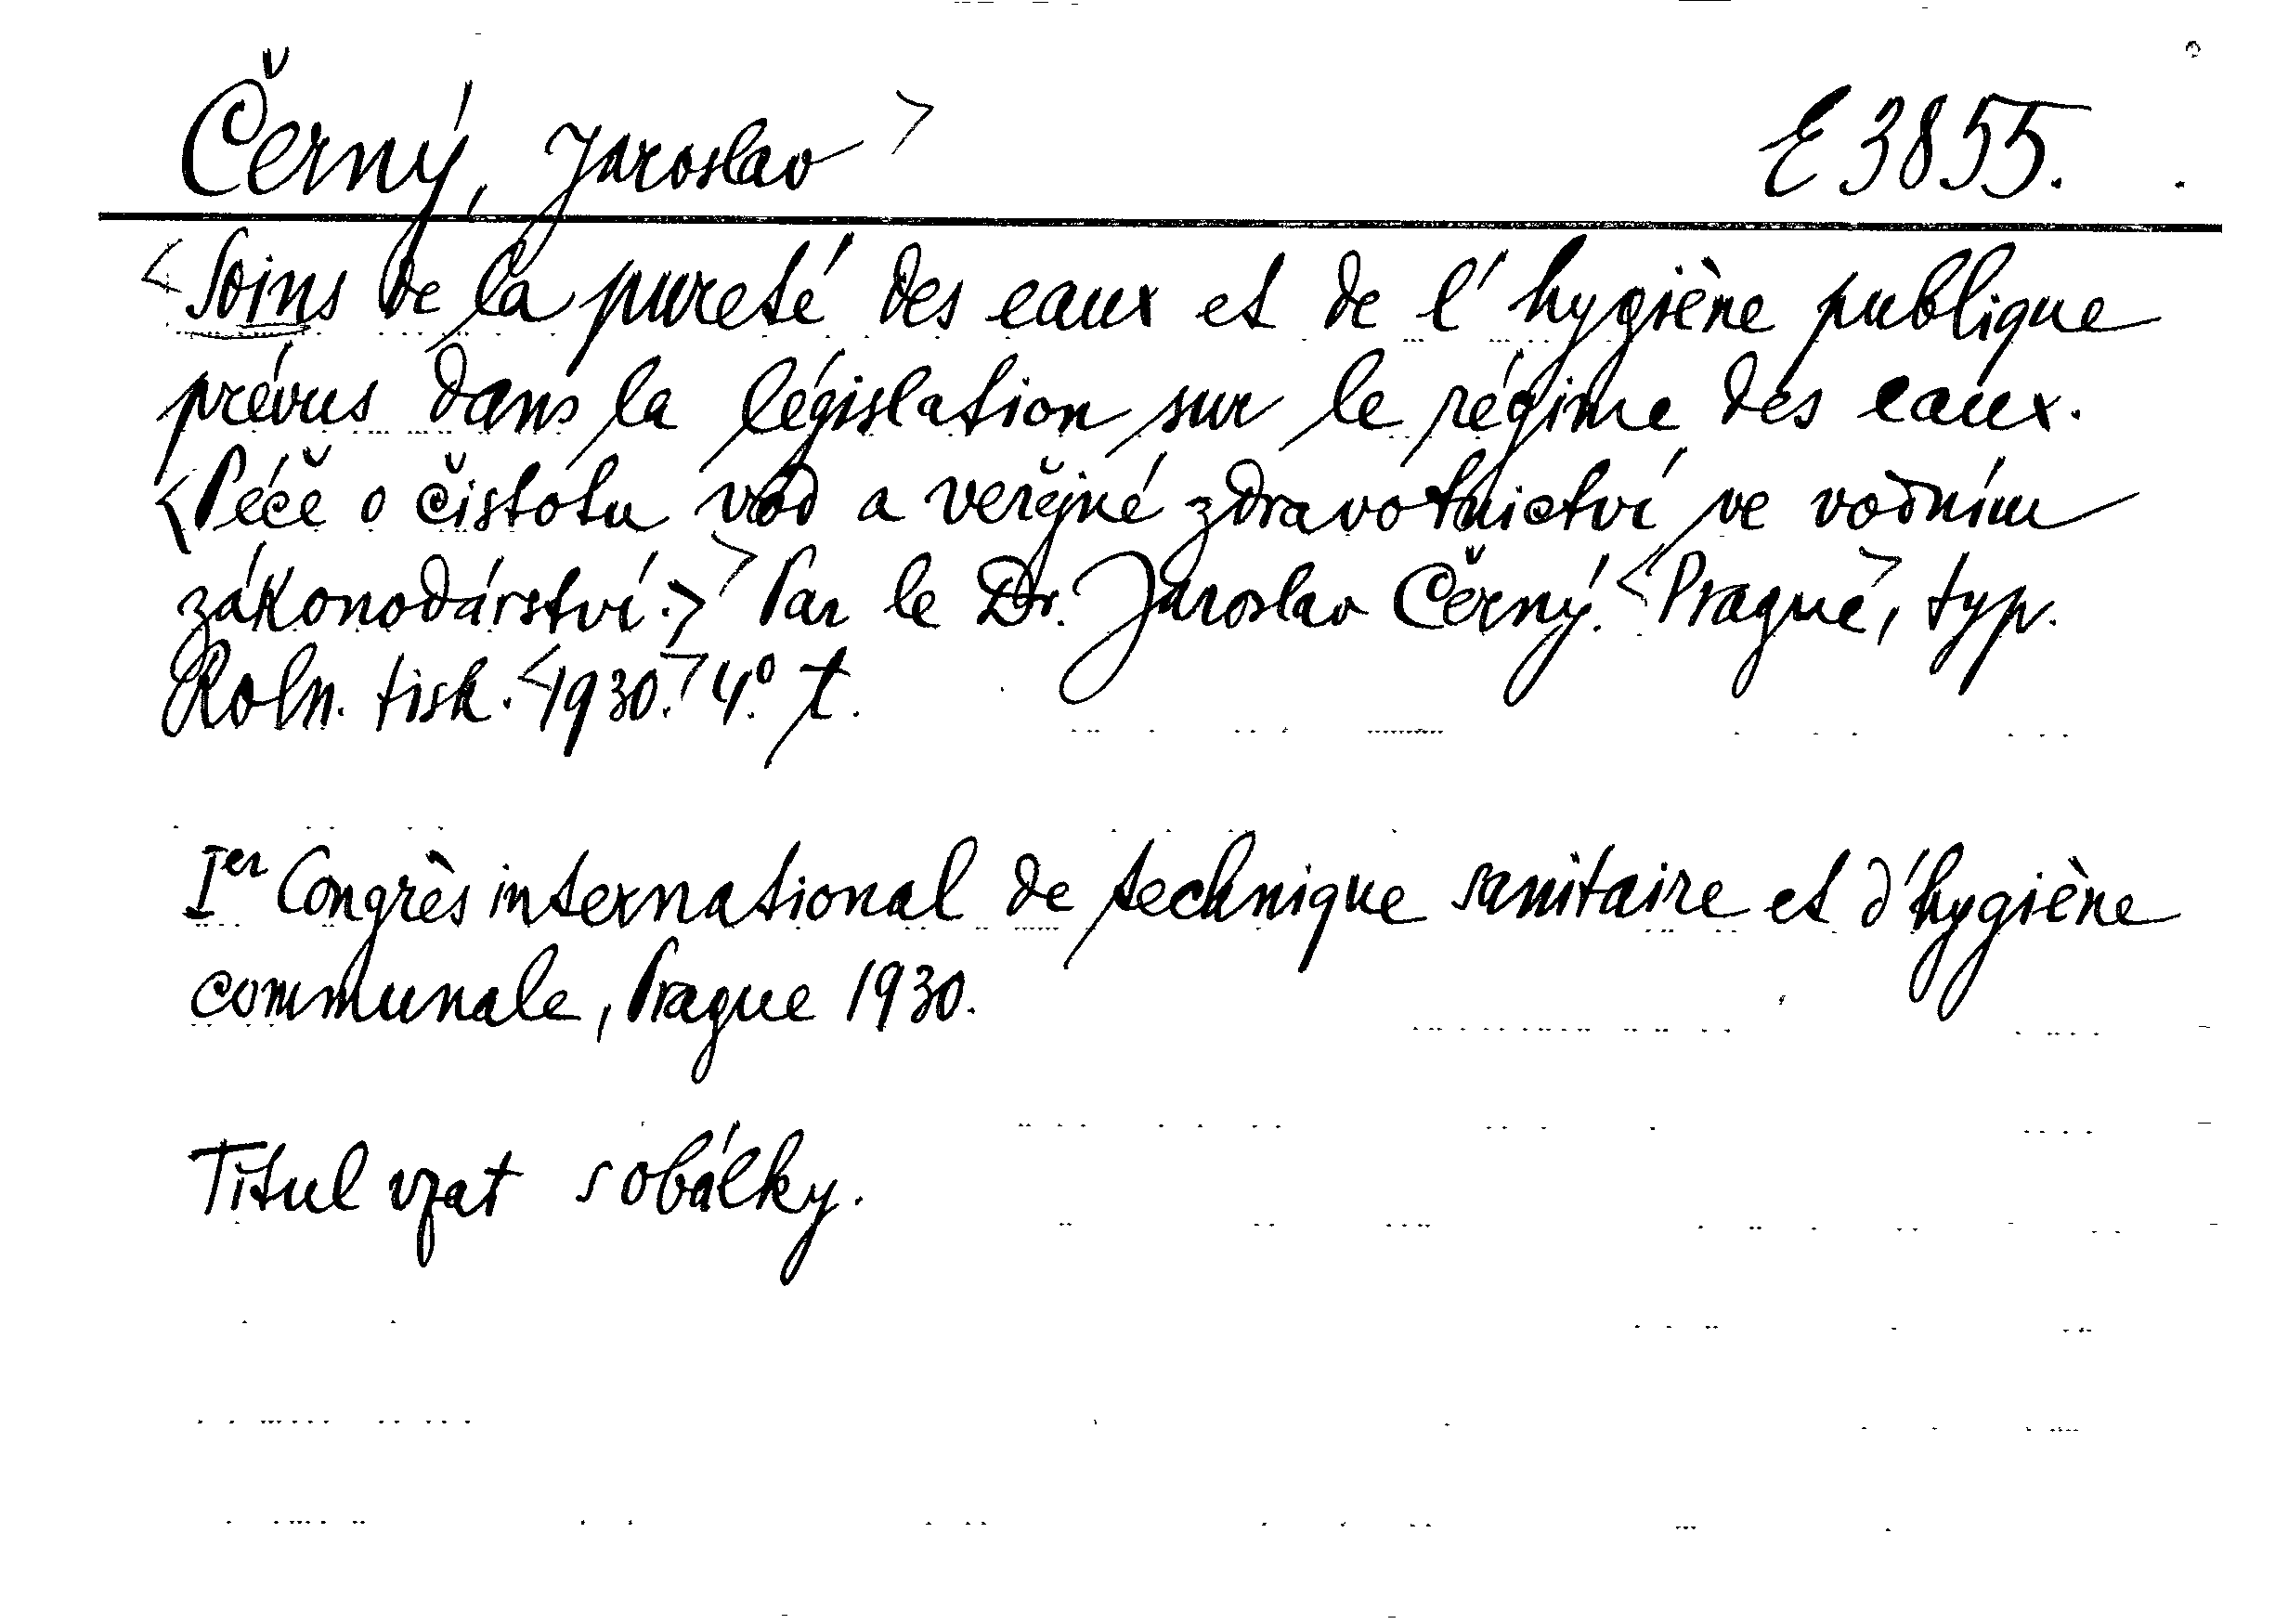 Černý, Jaroslav> E 3855.
<Soins de la pureté des eaux et de l'hygiène publique
prévus dans la législation sur le régime des eaux.
<Péče o čistotu vod a veřejné zdravotnictví ve vodním
zákonodárství.>> Par le Dr. Jaroslav Černý. <Prague>, typ.
Roln. tisk. <1930.> 4.° t.
Ier Congrès international de technique sanitaire et d'hygiène
communale, Prague 1930.
Titul vzat s obálky.